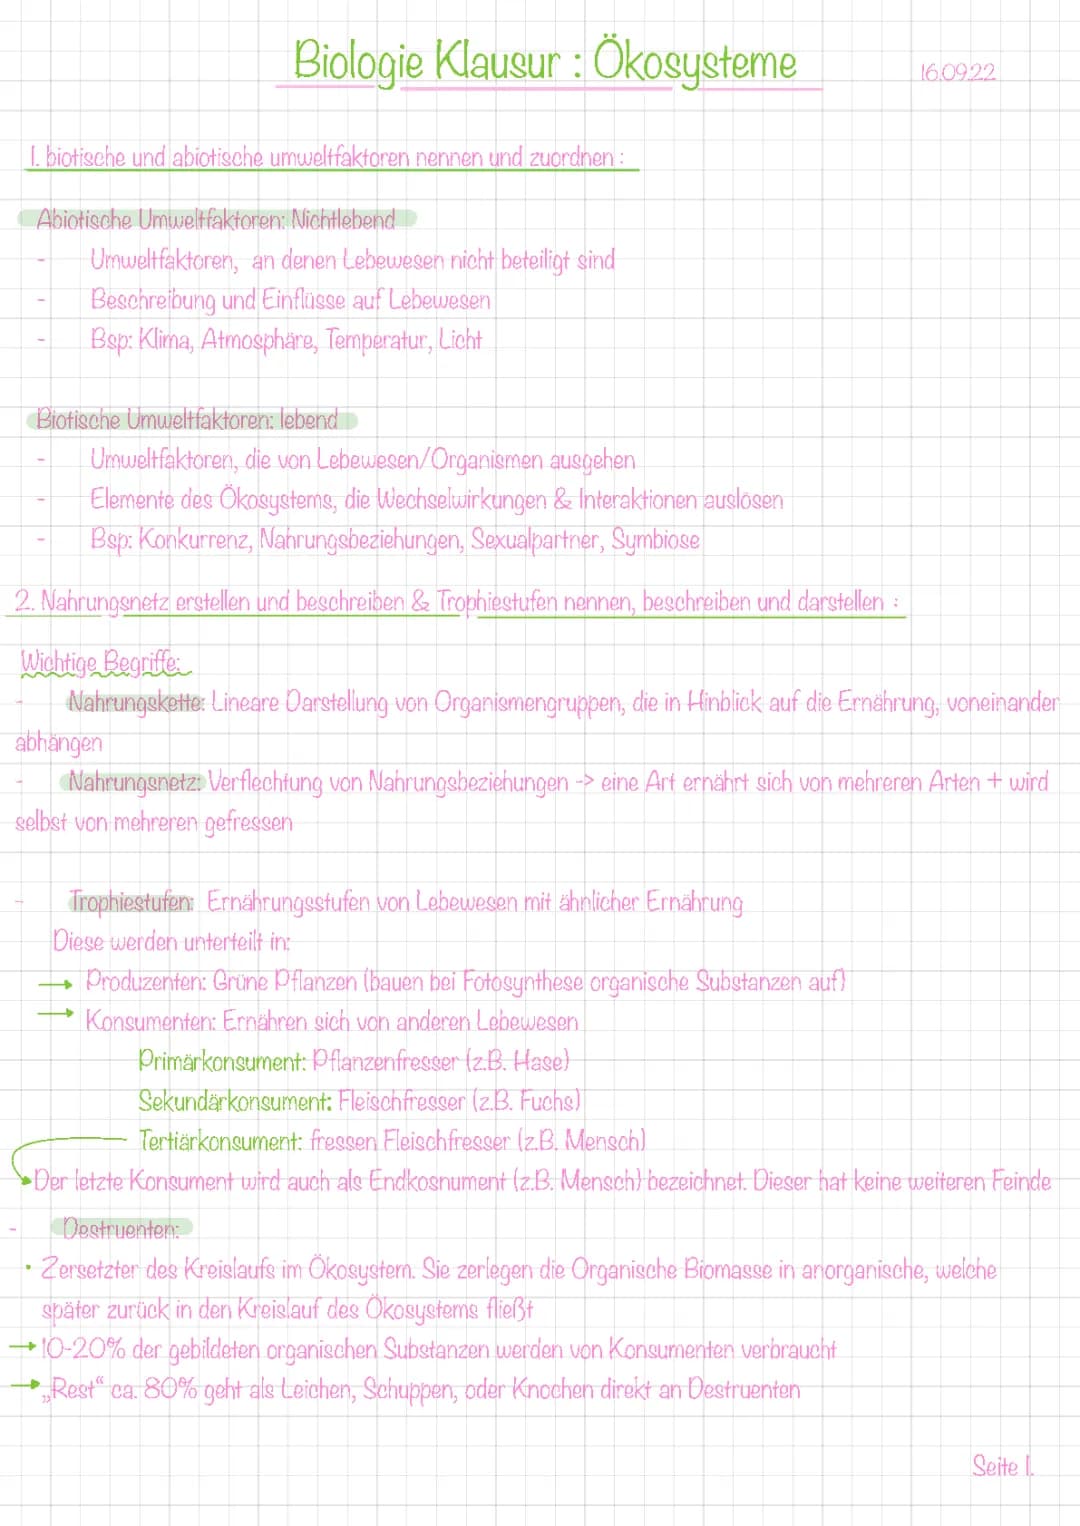 Biologie Klausur : Ökosysteme
16.09.22
1. biotische und abiotische umweltfaktoren nennen und zuordnen :
Abiotische Umweltfaktoren: Nichtlebend
- Umweltfaktoren, an denen Lebewesen nicht beteiligt sind
- Beschreibung und Einflüsse auf Lebewesen
- Bsp: Klima, Atmosphäre, Temperatur, Licht
Biotische Umweltfaktoren: lebend
- Umweltfaktoren, die von Lebewesen/Organismen ausgehen
- Elemente des Ökosystems, die Wechselwirkungen & Interaktionen auslösen
- Bsp: Konkurrenz, Nahrungsbeziehungen, Sexualpartner, Symbiose
2. Nahrungsnetz erstellen und beschreiben & Trophiestufen nennen, beschreiben und darstellen :
Wichtige Begriffe:
- Nahrungskette: Lineare Darstellung von Organismengruppen, die in Hinblick auf die Ernährung, voneinander
abhängen
- Nahrungsnetz: Verflechtung von Nahrungsbeziehungen -> eine Art ernährt sich von mehreren Arten + wird
selbst von mehreren gefressen
- Trophiestufen: Ernährungsstufen von Lebewesen mit ähnlicher Ernährung
Diese werden unterteilt in:
→ Produzenten: Grüne Pflanzen (bauen bei Fotosynthese organische Substanzen auf)
→ Konsumenten: Ernähren sich von anderen Lebewesen
Primärkonsument: Pflanzenfresser (z.B. Hase)
Sekundärkonsument: Fleischfresser (z.B. Fuchs)
Tertiärkonsument: fressen Fleischfresser (z.B. Mensch)
Der letzte Konsument wird auch als Endkosnument (z.B. Mensch) bezeichnet. Dieser hat keine weiteren Feinde
- Destruenten:
• Zersetzter des Kreislaufs im Ökosystem. Sie zerlegen die Organische Biomasse in anorganische, welche
später zurück in den Kreislauf des Ökosystems fließt
→ 10-20% der gebildeten organischen Substanzen werden von Konsumenten verbraucht
→ „Rest“ ca. 80% geht als Leichen, Schuppen, oder Knochen direkt an Destruenten
Seite 1.